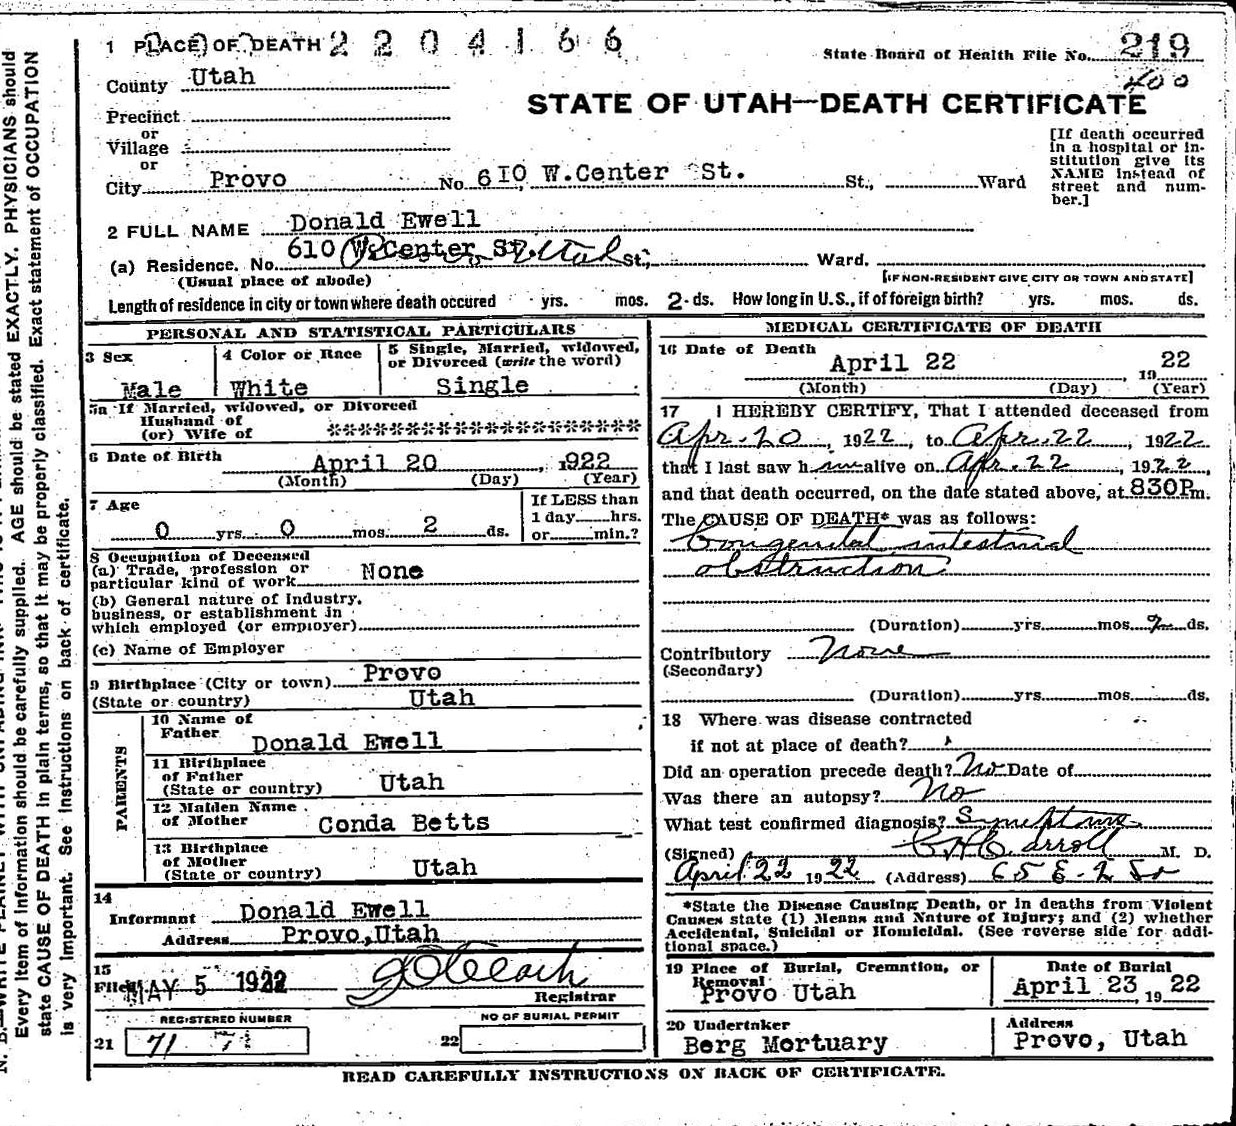 1 PLACE OF DEATH 2204166
State Board of Health File No. 219
400
County Utah
STATE OF UTAH—DEATH CERTIFICATE
Precinct
or
Village
or
City Provo No. 610 W.Center St. St., Ward
[If death occurred in a hospital or institution give its NAME instead of street and number.]
2 FULL NAME Donald Ewell
(a) Residence. No. 610 W.Center St. St., Ward.
(Usual place of abode)
[IF NON-RESIDENT GIVE CITY OR TOWN AND STATE]
Length of residence in city or town where death occured yrs. mos. 2 ds. How long in U.S., if of foreign birth? yrs. mos. ds.
PERSONAL AND STATISTICAL PARTICULARS
3 Sex
Male
4 Color or Race
White
5 Single, Married, widowed, or Divorced (write the word)
Single
5a If Married, widowed, or Divorced
Husband of
(or) Wife of ***************************
6 Date of Birth April 20, 1922
(Month) (Day) (Year)
7 Age
0 yrs. 0 mos. 2 ds.
If LESS than
1 day hrs.
or min.?
8 Occupation of Deceased
(a) Trade, profession or
particular kind of work None
(b) General nature of Industry,
business, or establishment in
which employed (or employer)
(c) Name of Employer
9 Birthplace (City or town) Provo
(State or country) Utah
PARENTS
10 Name of
Father Donald Ewell
11 Birthplace
of Father
(State or country) Utah
12 Maiden Name
of Mother Conda Betts
13 Birthplace
of Mother
(State or country) Utah
14
Informant Donald Ewell
Address Provo,Utah
15
Filed MAY 5 1922
Registrar
REGISTERED NUMBER
NO OF BURIAL PERMIT
21 71 71
22
MEDICAL CERTIFICATE OF DEATH
16 Date of Death
April 22, 1922
(Month) (Day) (Year)
17 I HEREBY CERTIFY, That I attended deceased from
Apr. 20, 1922, to Apr. 22, 1922
that I last saw him alive on Apr. 22, 1922,
and that death occurred, on the date stated above, at 830P m.
The CAUSE OF DEATH* was as follows:
Congenital intestinal
obstruction
(Duration) yrs. mos. 2 ds.
Contributory None
(Secondary)
(Duration) yrs. mos. ds.
18 Where was disease contracted
if not at place of death?
Did an operation precede death? No Date of
Was there an autopsy? No
What test confirmed diagnosis? Symptoms
(Signed) Carroll M. D.
April 22 1922 (Address) 65 E-2 So
*State the Disease Causing Death, or in deaths from Violent
Causes state (1) Means and Nature of Injury; and (2) whether
Accidental, Suicidal or Homicidal. (See reverse side for addi-
tional space.)
19 Place of Burial, Cremation, or
Removal
Provo Utah
Date of Burial
April 23, 1922
20 Undertaker
Berg Mortuary
Address
Provo, Utah
READ CAREFULLY INSTRUCTIONS ON BACK OF CERTIFICATE.
Every item of information should be carefully supplied. AGE should be stated EXACTLY. PHYSICIANS should
state CAUSE OF DEATH in plain terms, so that it may be properly classified. Exact statement of OCCUPATION
is very important. See instructions on back of certificate.